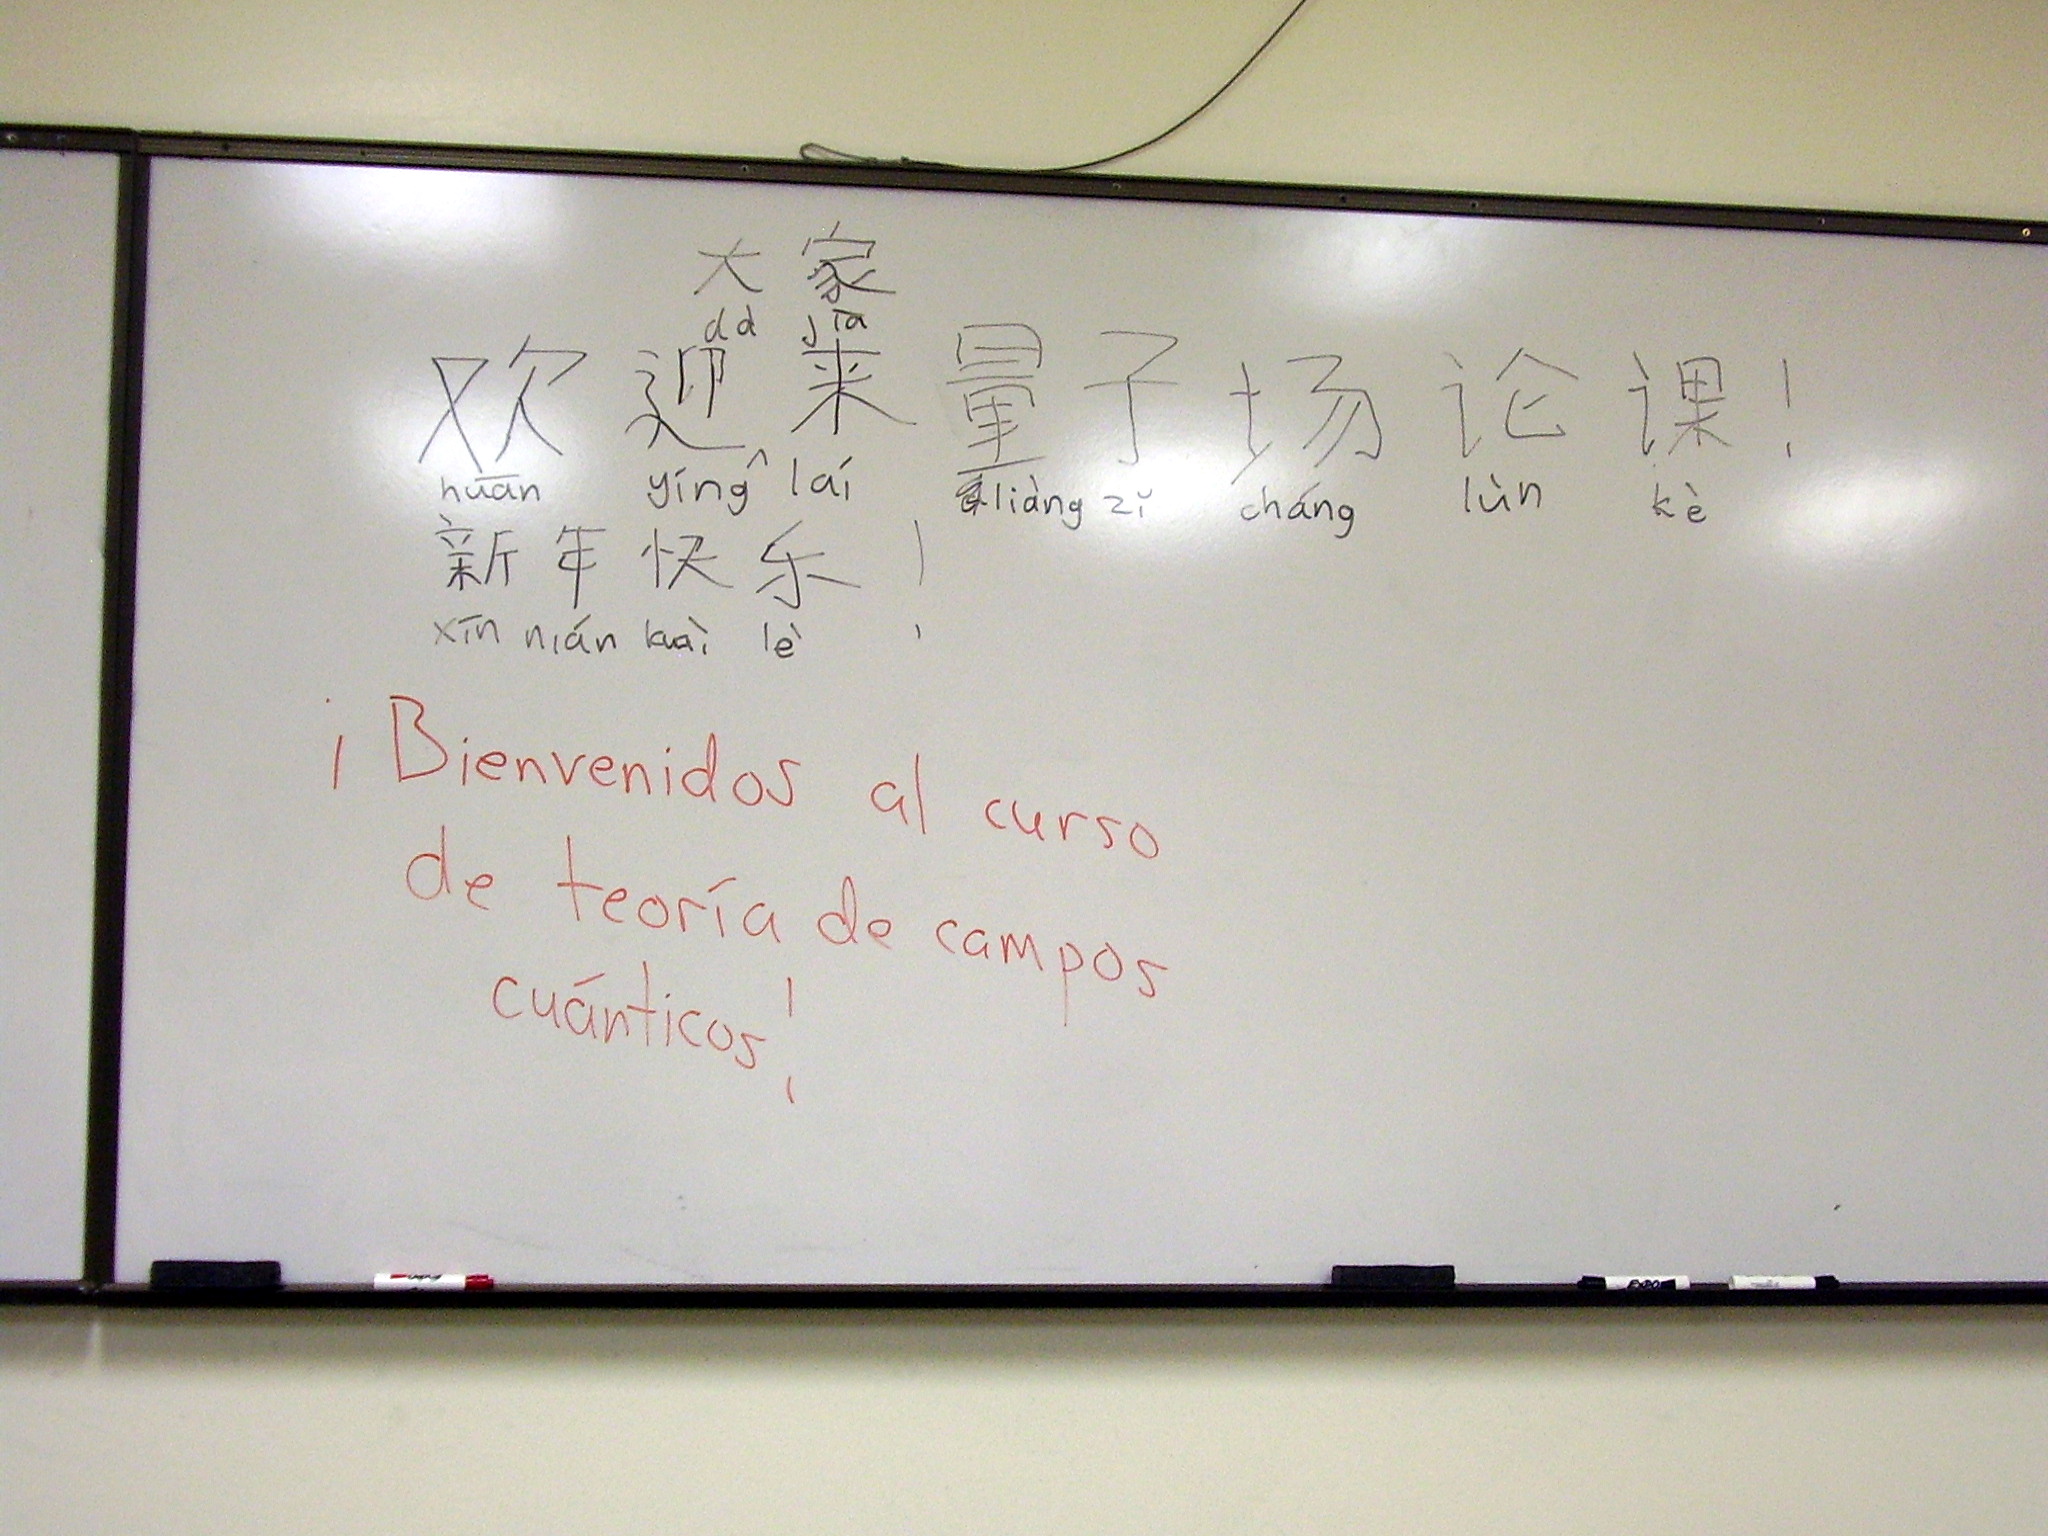 大家
dà jiā
欢迎^来量子场论课！
huān yíng lái liàng zǐ cháng lùn kè
新年快乐！
xīn nián kuài lè
¡Bienvenidos al curso
de teoría de campos
cuánticos!
EXPO